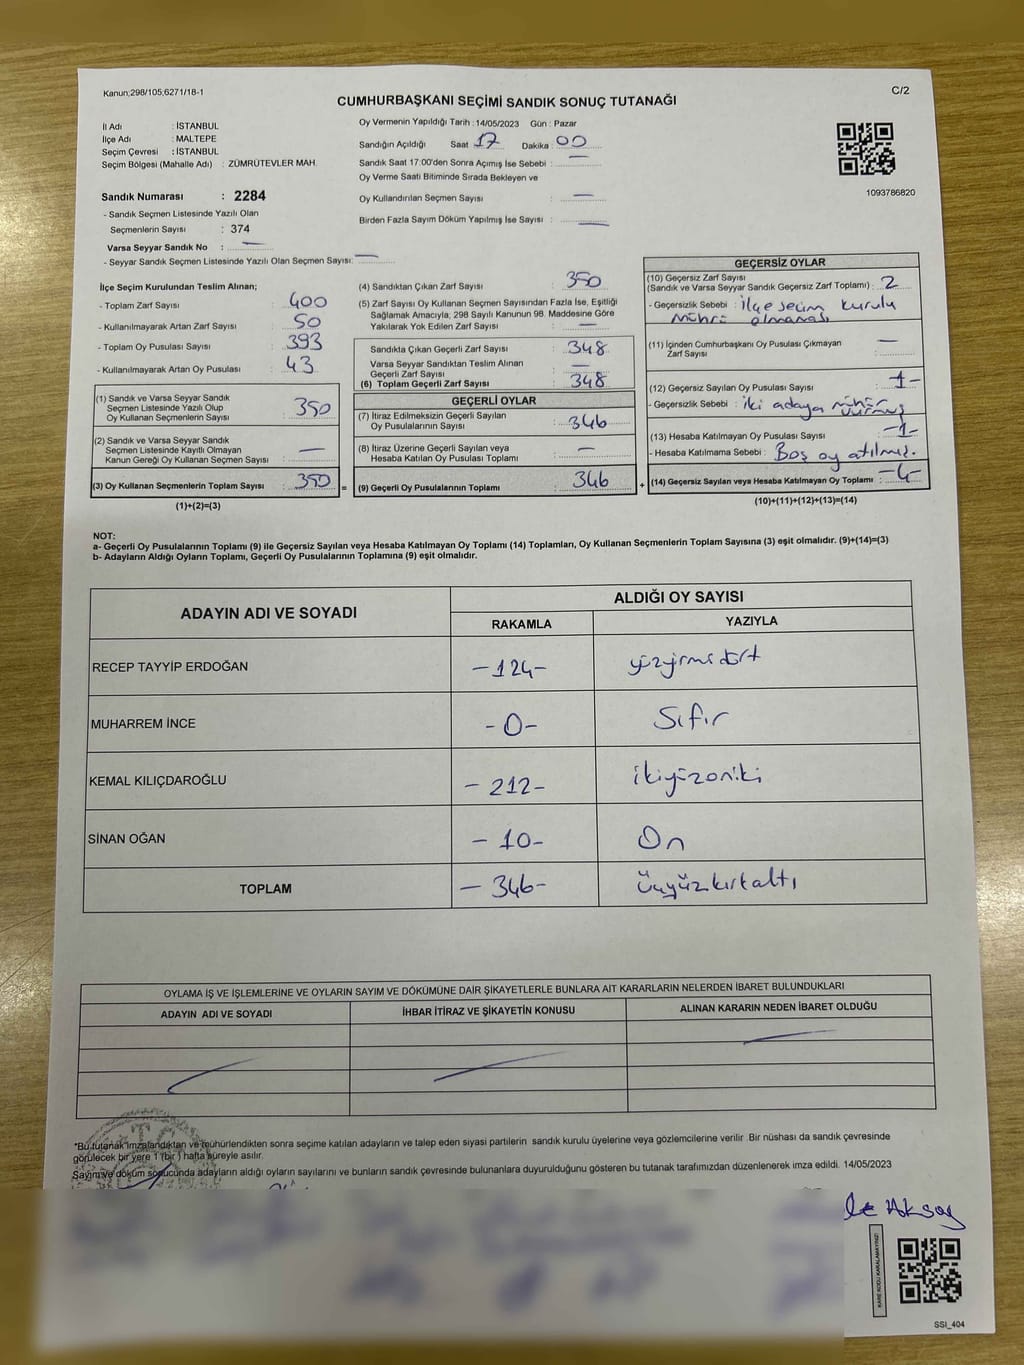 Kanun;298/105,6271/18-1
C/2
CUMHURBAŞKANI SEÇİMİ SANDIK SONUÇ TUTANAĞI
İl Adı : İSTANBUL
İlçe Adı : MALTEPE
Seçim Çevresi : İSTANBUL
Seçim Bölgesi (Mahalle Adı) : ZÜMRÜTEVLER MAH.
Sandık Numarası : 2284
- Sandık Seçmen Listesinde Yazılı Olan
Seçmenlerin Sayısı : 374
Varsa Seyyar Sandık No : —
- Seyyar Sandık Seçmen Listesinde Yazılı Olan Seçmen Sayısı: —
Oy Vermenin Yapıldığı Tarih : 14/05/2023 Gün : Pazar
Sandığın Açıldığı Saat 17 Dakika 00
Sandık Saat 17:00'den Sonra Açımış İse Sebebi : —
Oy Verme Saati Bitiminde Sırada Bekleyen ve
Oy Kullandırılan Seçmen Sayısı : —
Birden Fazla Sayım Döküm Yapılmış İse Sayısı : —
1093786820
İlçe Seçim Kurulundan Teslim Alınan;
- Toplam Zarf Sayısı : 400
- Kullanılmayarak Artan Zarf Sayısı : 50
- Toplam Oy Pusulası Sayısı : 393
- Kullanılmayarak Artan Oy Pusulası : 43
(1) Sandık ve Varsa Seyyar Sandık
Seçmen Listesinde Yazılı Olup
Oy Kullanan Seçmenlerin Sayısı : 350
(2) Sandık ve Varsa Seyyar Sandık
Seçmen Listesinde Kayıtlı Olmayan
Kanun Gereği Oy Kullanan Seçmen Sayısı : —
(3) Oy Kullanan Seçmenlerin Toplam Sayısı : 350 =
(1)+(2)=(3)
(4) Sandıktan Çıkan Zarf Sayısı : 350
(5) Zarf Sayısı Oy Kullanan Seçmen Sayısından Fazla İse, Eşitliği
Sağlamak Amacıyla, 298 Sayılı Kanunun 98. Maddesine Göre
Yakılarak Yok Edilen Zarf Sayısı : —
Sandıkta Çıkan Geçerli Zarf Sayısı : 348
Varsa Seyyar Sandıktan Teslim Alınan
Geçerli Zarf Sayısı : —
(6) Toplam Geçerli Zarf Sayısı : 348
GEÇERLİ OYLAR
(7) İtiraz Edilmeksizin Geçerli Sayılan
Oy Pusulalarının Sayısı : 346
(8) İtiraz Üzerine Geçerli Sayılan veya
Hesaba Katılan Oy Pusulası Toplamı : —
(9) Geçerli Oy Pusulalarının Toplamı : 346 +
GEÇERSİZ OYLAR
(10) Geçersiz Zarf Sayısı
(Sandık ve Varsa Seyyar Sandık Geçersiz Zarf Toplamı) : 2
- Geçersizlik Sebebi : İlçe seçim kurulu
mührü olmaması
(11) İçinden Cumhurbaşkanı Oy Pusulası Çıkmayan
Zarf Sayısı : —
(12) Geçersiz Sayılan Oy Pusulası Sayısı : -1-
- Geçersizlik Sebebi : iki adaya mühür
vurmuş
(13) Hesaba Katılmayan Oy Pusulası Sayısı : -1-
- Hesaba Katılmama Sebebi : Boş oy atılmış.
(14) Geçersiz Sayılan veya Hesaba Katılmayan Oy Toplamı : -4-
(10)+(11)+(12)+(13)=(14)
NOT:
a- Geçerli Oy Pusulalarının Toplamı (9) ile Geçersiz Sayılan veya Hesaba Katılmayan Oy Toplamı (14) Toplamları, Oy Kullanan Seçmenlerin Toplam Sayısına (3) eşit olmalıdır. (9)+(14)=(3)
b- Adayların Aldığı Oyların Toplamı, Geçerli Oy Pusulalarının Toplamına (9) eşit olmalıdır.
ADAYIN ADI VE SOYADI ALDIĞI OY SAYISI
RAKAMLA YAZIYLA
RECEP TAYYİP ERDOĞAN -124- yüzyirmidört
MUHARREM İNCE -0- Sıfır
KEMAL KILIÇDAROĞLU -212- ikiyüzoniki
SİNAN OĞAN -10- On
TOPLAM -346- Üçyüzkırkaltı
OYLAMA İŞ VE İŞLEMLERİNE VE OYLARIN SAYIM VE DÖKÜMÜNE DAİR ŞİKAYETLERLE BUNLARA AİT KARARLARIN NELERDEN İBARET BULUNDUKLARI
ADAYIN ADI VE SOYADI İHBAR İTİRAZ VE ŞİKAYETİN KONUSU ALINAN KARARIN NEDEN İBARET OLDUĞU
*Bu tutanak imzalandıktan ve mühürlendikten sonra seçime katılan adayların ve talep eden siyasi partilerin sandık kurulu üyelerine veya gözlemcilerine verilir .Bir nüshası da sandık çevresinde
görülecek bir yere 1 (bir ) hafta süreyle asılır.
Sayım ve döküm sonucunda adayların aldığı oyların sayılarını ve bunların sandık çevresinde bulunanlara duyurulduğunu gösteren bu tutanak tarafımızdan düzenlenerek imza edildi. 14/05/2023
Aksoy
KARE KODU KARALAMAYINIZ!
SSI_404